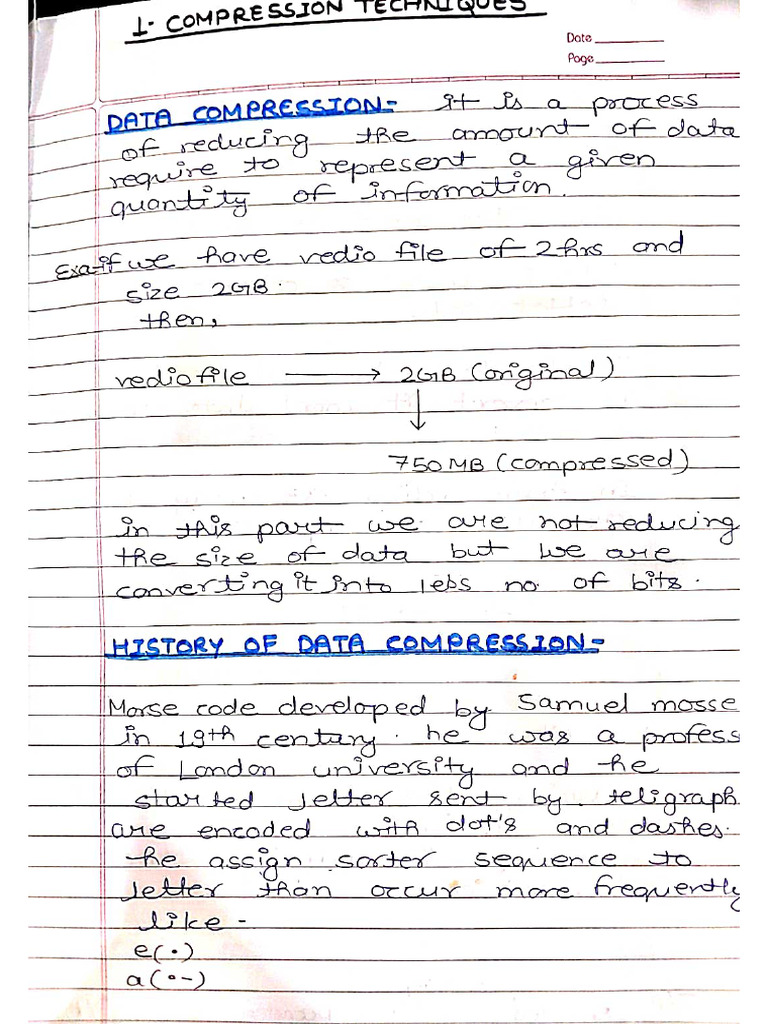 1. COMPRESSION TECHNIQUES
Date
Page
DATA COMPRESSION- it is a process
of reducing the amount of data
require to represent a given
quantity of information.
Exa-if we have vedio file of 2 hrs and
size 2GB.
then,
vedio file → 2GB (original)
↓
750 MB (compressed)
in this part we are not reducing
the size of data but we are
converting it into less no. of bits.
HISTORY OF DATA COMPRESSION-
Morse code developed by Samuel mosse
in 19th century. he was a profess
of London university and he
started letter sent by teligraph
are encoded with dot's and dashes.
he assign sorter sequence to
letter than occur more frequently
like -
e(•)
a(•-)